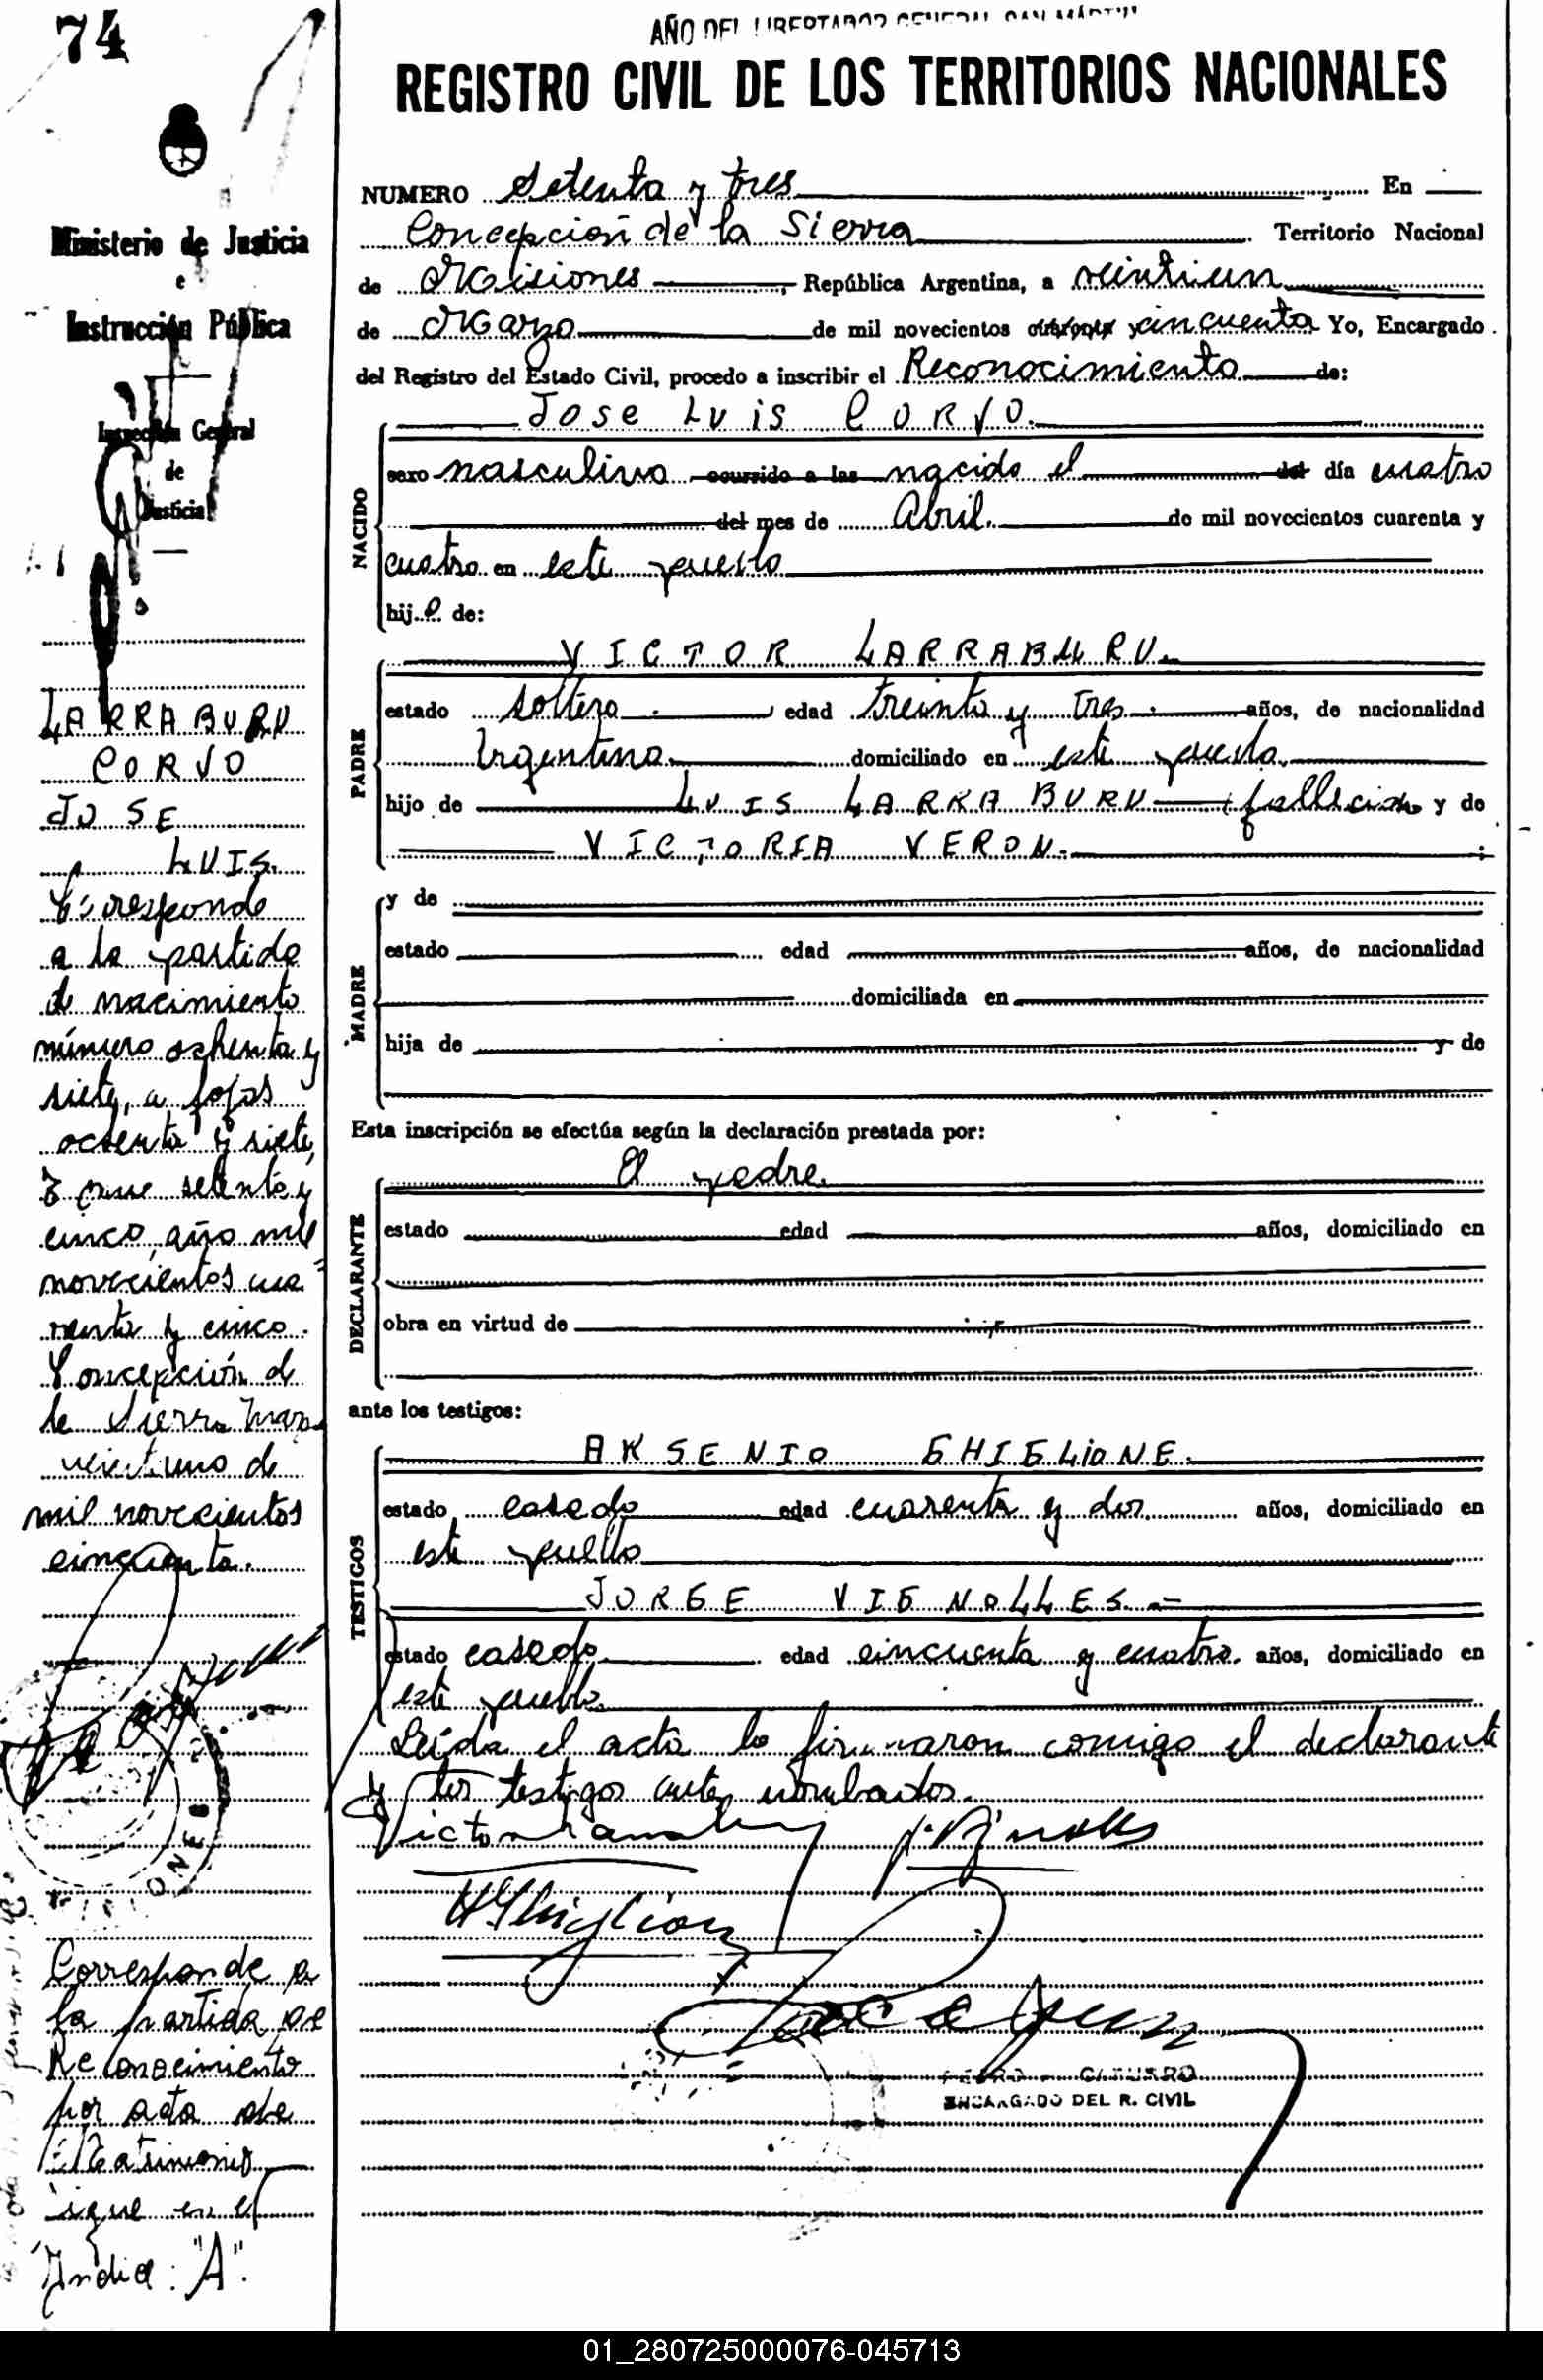 74
AÑO DEL LIBERTADOR GENERAL SAN MARTIN
REGISTRO CIVIL DE LOS TERRITORIOS NACIONALES
Ministerio de Justicia
e
Instrucción Pública
Inspección General
de
Justicia
LARRABURU
CORVO
JOSE
LUIS.
Corresponde
a la partida
de nacimiento
número ochenta y
siete, a fojas
ochenta y siete,
setenta y
cinco, año mil
novecientos cua
renta y cinco.
Concepción de
la Sierra Marzo
veintiuno de
mil novecientos
cincuenta.
Corresponde a
la partida de
Reconocimiento
por acta de
Matrimonio
sigue en el
Indice: "A".
NUMERO Setenta y tres En
Concepción de la Sierra Territorio Nacional
de Misiones, República Argentina, a veintiun
de Marzo de mil novecientos cuarenta y cincuenta Yo, Encargado
del Registro del Estado Civil, procedo a inscribir el Reconocimiento de:
NACIDO
JOSE LUIS CORVO.
sexo masculino ocurrido a las nacido el del día cuatro
del mes de Abril. de mil novecientos cuarenta y
cuatro en este pueblo
hijo de:
PADRE
VICTOR LARRABURU.
estado soltero. edad treinta y tres. años, de nacionalidad
Argentina. domiciliado en este pueblo.
hijo de LUIS LARRABURU fallecido y de
VICTORIA VERON. ;
MADRE
y de
estado edad años, de nacionalidad
domiciliada en
hija de y de
Esta inscripción se efectúa según la declaración prestada por:
DECLARANTE
El padre.
estado edad años, domiciliado en
obra en virtud de
ante los testigos:
TESTIGOS
ARSENIO GHIGLIONE.
estado casado edad cuarenta y dos años, domiciliado en
este pueblo
JORGE VIGNOLLES.
estado casado edad cincuenta y cuatro. años, domiciliado en
este pueblo.
Leída el acta la firmaron conmigo el declarante
y los testigos antes nombrados.
Victor
ENCARGADO DEL R. CIVIL
01_280725000076-045713